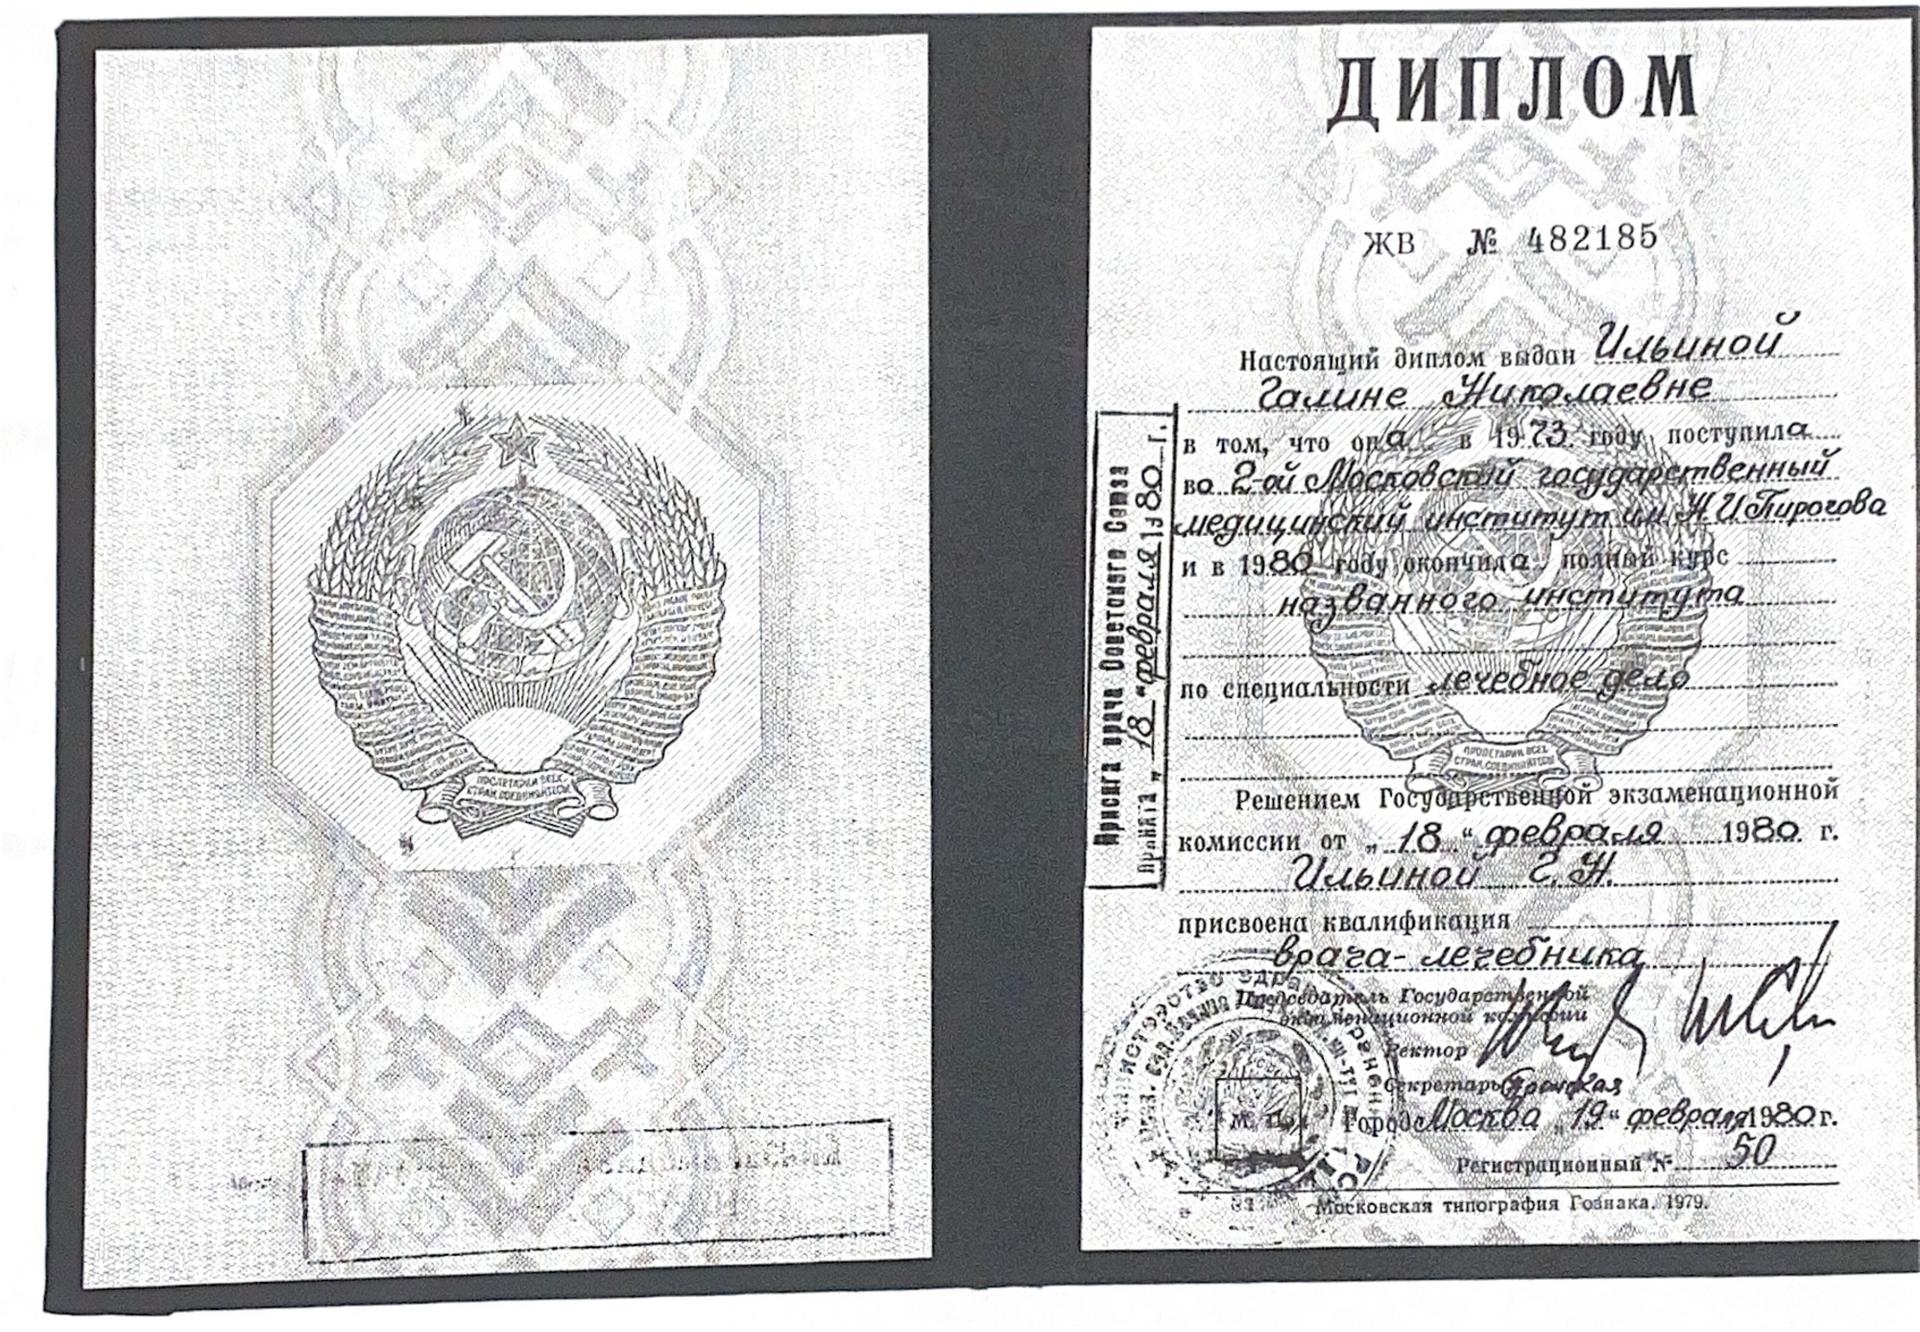 ПРОЛЕТАРИИ ВСЕХ
СТРАН, СОЕДИНЯЙТЕСЬ!
ДИПЛОМ
ЖВ № 482185
Настоящий диплом выдан Ильиной
Галине Николаевне
в том, что она в 1973 году поступила
во 2-ой Московский государственный
медицинский институт им. Н.И Пирогова
и в 1980 году окончила полный курс
названного института
по специальности лечебное дело
ПРОЛЕТАРИИ ВСЕХ
СТРАН, СОЕДИНЯЙТЕСЬ!
Решением Государственной экзаменационной
комиссии от „18“ февраля 1980 г.
Ильиной Г. Н.
присвоена квалификация
врача-лечебника
Председатель Государственной
экзаменационной комиссии
Ректор
Секретарь
М. П. Город Москва „19“ февраля 1980 г.
Регистрационный № 50
Московская типография Гознака. 1979.
Присяга врача Советского Союза
принята „18“ февраля 1980 г.